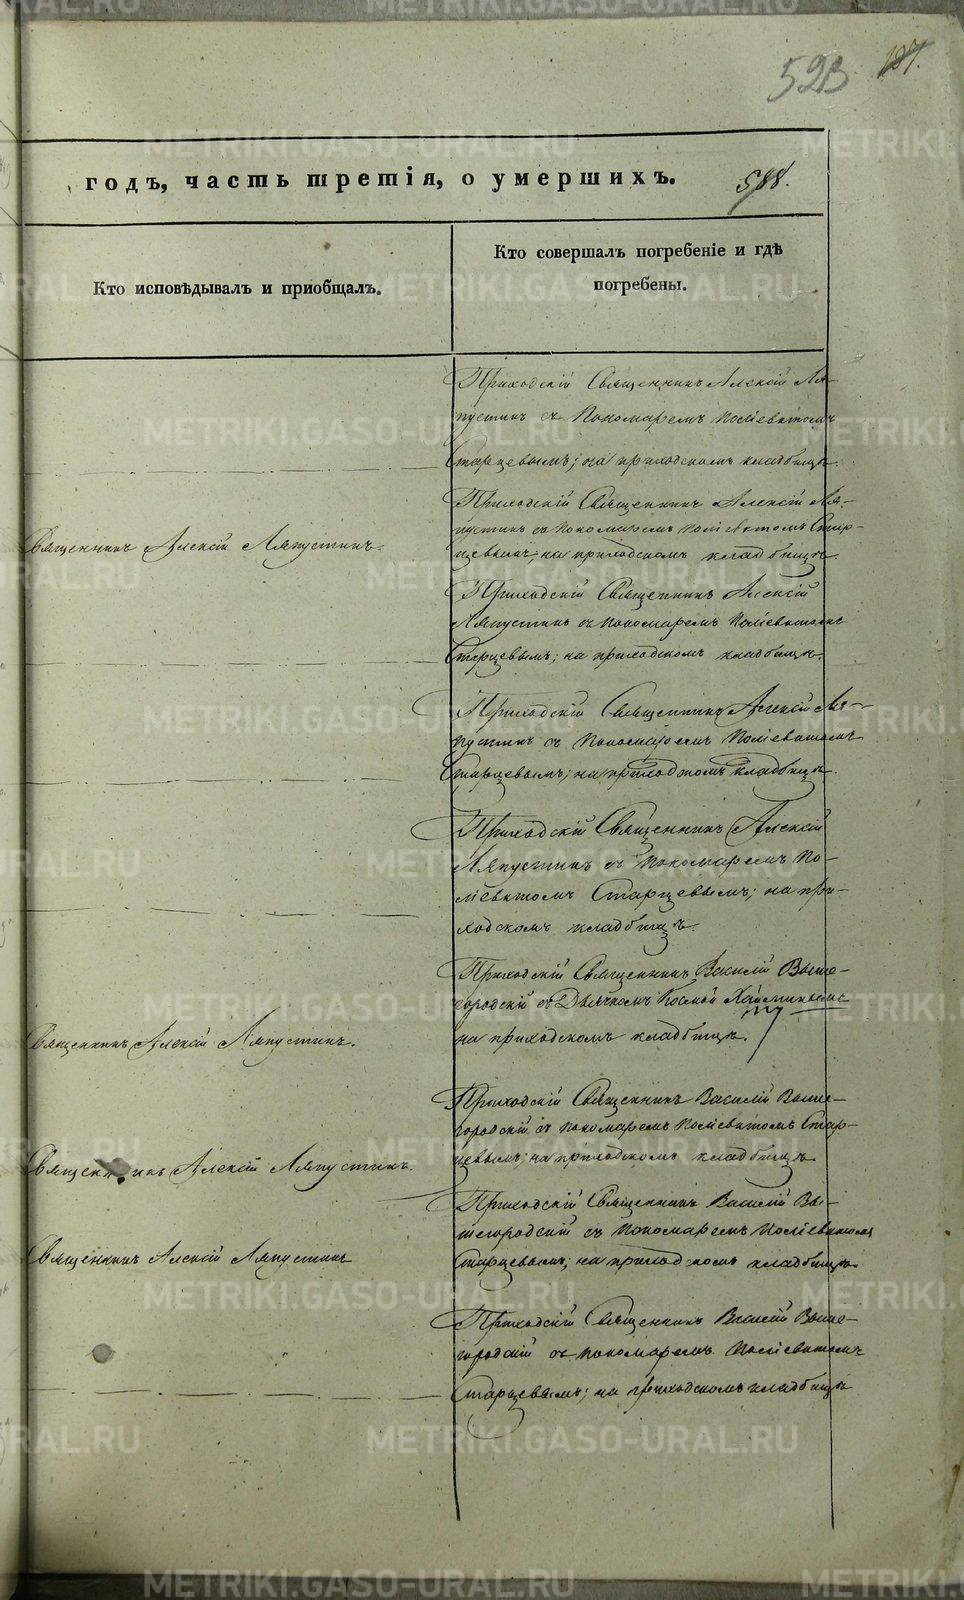 523
годъ, часть третія, о умершихъ.
588.
Кто исповѣдывалъ и приобщалъ.
Кто совершалъ погребеніе и гдѣ
погребены.
Приходскій Священникъ Алексій Ля-
пустинъ съ Пономаремъ Поліевктомъ
Старцевымъ; на приходскомъ кладбищѣ.
Священникъ Алексій Ляпустинъ.
Приходскій Священникъ Алексій Ля-
пустинъ съ Пономаремъ Поліевктомъ Стар-
цевымъ; на приходскомъ кладбищѣ.
Приходскій Священникъ Алексій
Ляпустинъ съ Пономаремъ Поліевктомъ
Старцевымъ; на приходскомъ кладбищѣ.
Приходскій Священникъ Алексій Ля-
пустинъ съ Пономаремъ Поліевктомъ
Старцевымъ; на приходскомъ кладбищѣ.
Приходскій Священникъ Алексій
Ляпустинъ съ Пономаремъ По-
ліевктомъ Старцевымъ; на при-
ходскомъ кладбищѣ.
Священникъ Алексій Ляпустинъ.
Приходскій Священникъ Василій Выше-
городскій съ Дьячкомъ Космой
на приходскомъ кладбищѣ.
Священникъ Алексій Ляпустинъ.
Приходскій Священникъ Василій Выше-
городскій съ Пономаремъ Поліевктомъ Стар-
цевымъ; на приходскомъ кладбищѣ.
Священникъ Алексій Ляпустинъ
Приходскій Священникъ Василій Вы-
шегородскій съ Пономаремъ Поліевктомъ
Старцевымъ; на приходскомъ кладбищѣ.
Приходскій Священникъ Василій Выше-
городскій съ Пономаремъ Поліевктомъ
Старцевымъ; на приходскомъ кладбищѣ
METRIKI.GASO-URAL.RU